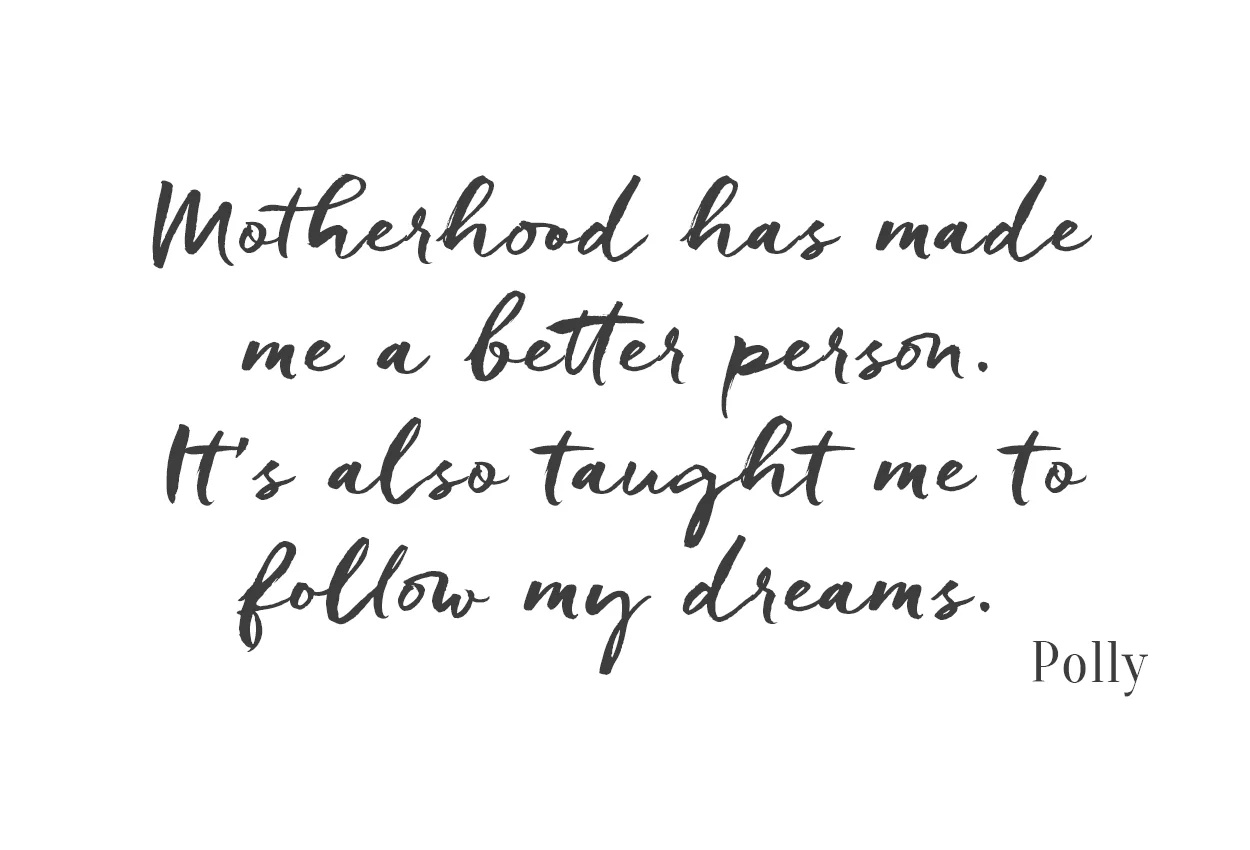 Motherhood has made
me a better person.
It's also taught me to
follow my dreams.
Polly